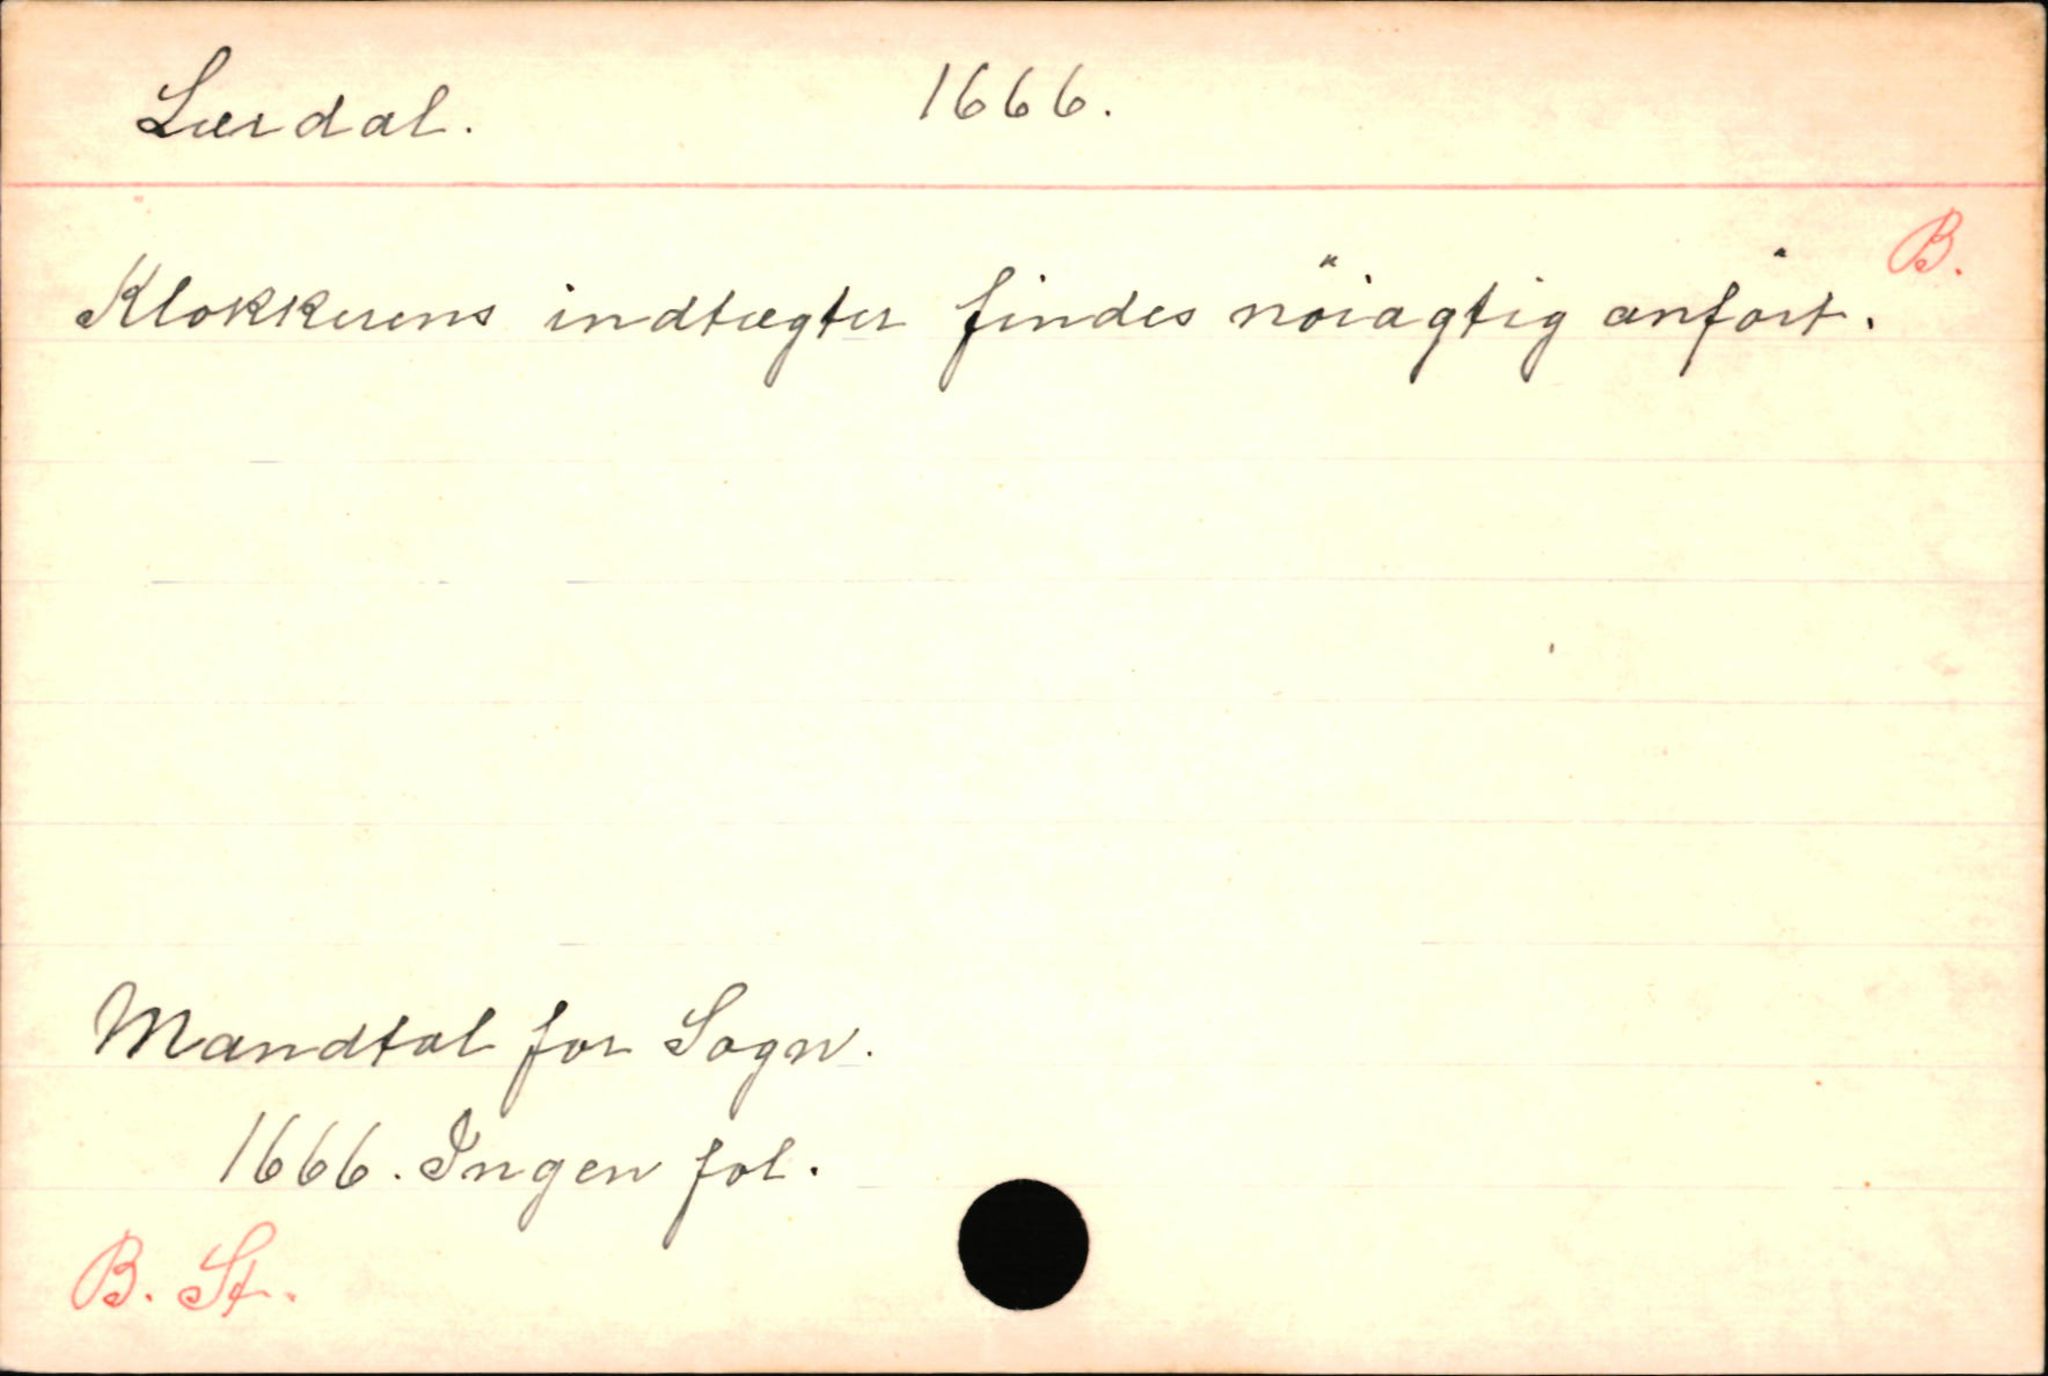 Lærdal. 1666.
B.
Klokkerens indtægter findes nöiagtig anfört.
Mandtal for Sogn.
1666. Ingen fol.
B. St.